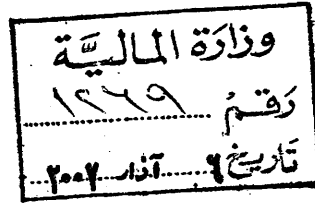 وزارة المالية
رقم ١٢٦٩
تاريخ ٦ آذار ٢٠٠٢